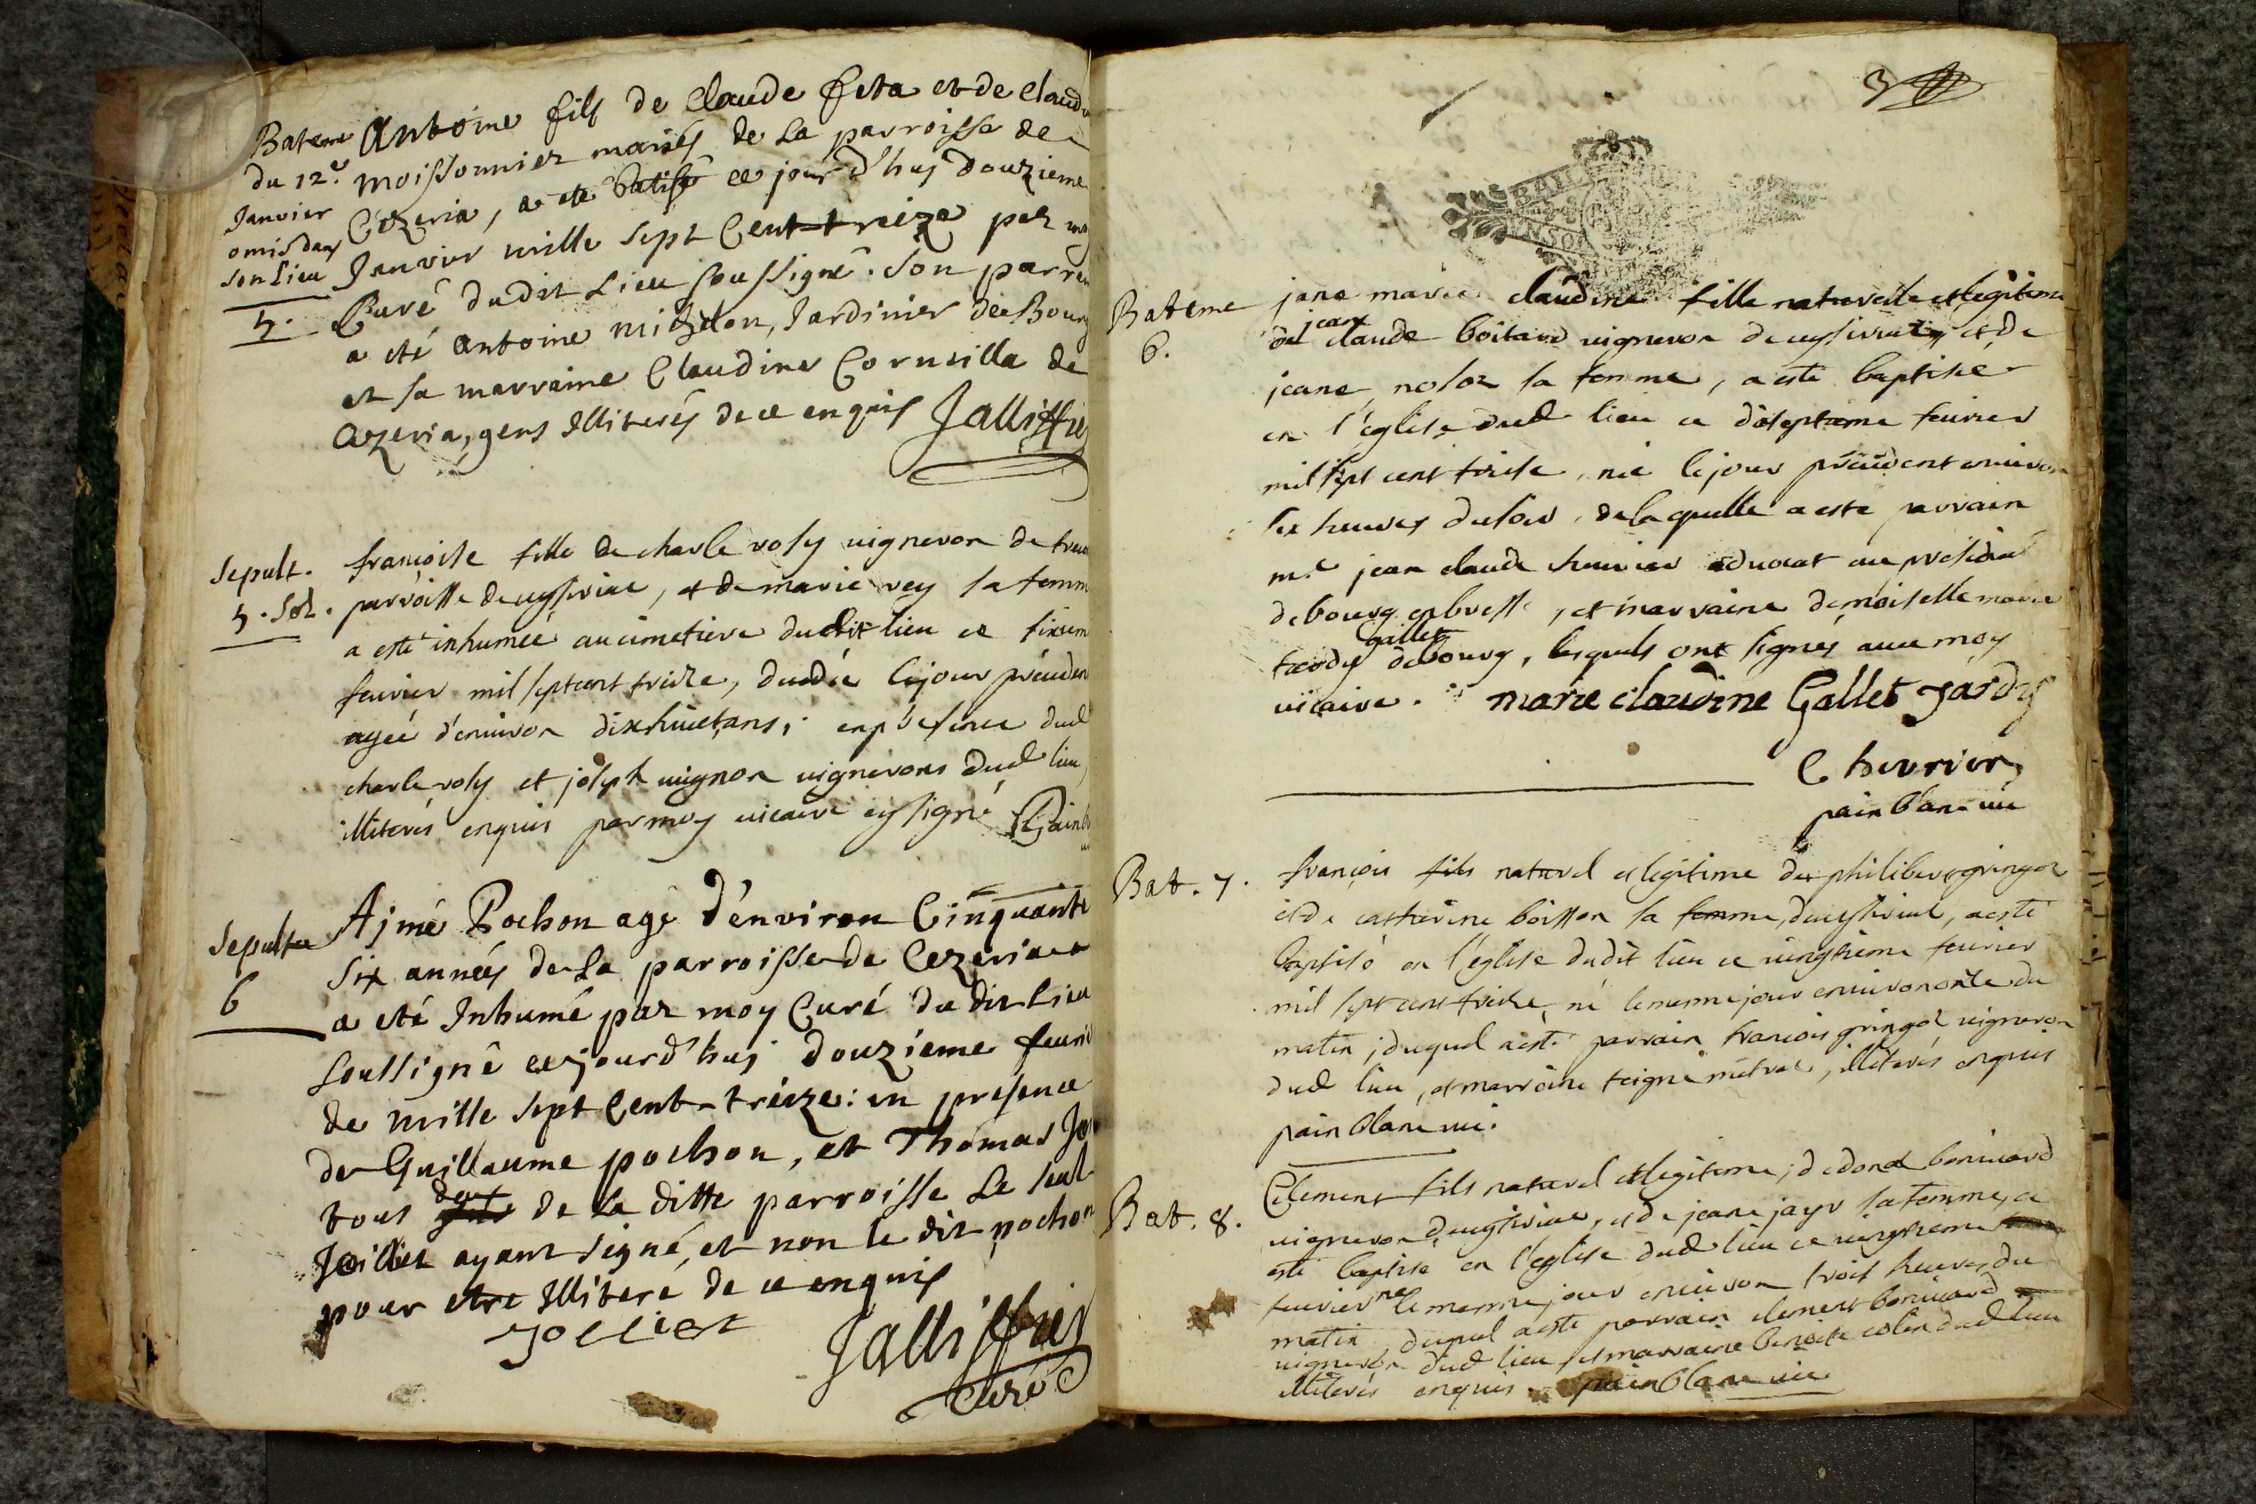 Bateme
du 12e.
Janvier
omis dans
son lieu
5.
Antoine fils de Claude feta et de Claud
moissonnier mariés de La parroisse de
Cezeria, a eté batisé ce jour d'huy douzieme
Janvier mille sept Cent treize par moy
Curé dudit Lieu soussigné. Son parrein
a eté Antoine michelon, Jardinier de Bourg
et sa marraine Claudine Cornuilla de
Cezeria, gens Illiterés de ce enquis Jalliffier
Sepult.
5. Sol.
francoise fille de charle roly vigneron de
parroisse de ceyseriac, et de marie rey sa femme
a esté inhumée au cimetiere dudit lieu ce sixieme
feuvrier mil sept cent treize, decedée le jour precedent
agée d'environ dix huict ans, en présence dud
charle roly et joseph mignon vignerons dud lieu
illiterés enquis par moy vicaire cy signé Painb
Sepultu
6
Ajmé Pochon agé d'environ Cinquante
Six années de La parroisse de Cezeriac
a eté Inhumé par moy Curé du dit Lieu
soussigné cejourd'huj douzieme feuri
de mille sept Cent treize: en presence
de Guillaume pochon, et Thomas Jo
tous deux de la ditte parroisse Le seul
Joillet ayant signé, et non le dit pochon
pour etre Illiteré de ce enquis
Jolliet
Jalliffier
Curé
3
Bateme
6.
jane marie claudine fille naturelle et legitime
de jean claude boitard vigneron de ceyseriac et de
jeane sa femme, a esté baptisée
en l'église dud lieu ce dixseptieme feurier
mil sept cent treise, née le jour précedent environ
six heures du soir, de laquelle a esté parrain
mre jean claude cheurier aduocat au présidial
de bourg en bresse, et marraine demoiselle marie
tardy gallet de bourg, lesquels ont signés auec moy
vicaire. marie claudine Gallet Tardy
Cheurier
pain blanc vic
Bat. 7.
françois fils naturel et legitime de philibert gringoz
et de catherine boisson sa femme, de ceyseriac, a esté
baptisé en l'église dudit lieu ce vingtieme feurier
mil sept cent treize, né le mesme jour environ onze du
matin, duquel a esté parrain francois gringoz vigneron
dud lieu, et marraine, illiterés enquis
pain blanc vic.
Bat. 8.
Clement fils naturel et legitime, de donat bonivard
vigneron de ceyseriac, et de jeane jayr sa femme, a
esté baptisé en l'église dud lieu ce vingtieme
feurier né le mesme jour environ trois heures du
matin, duquel a esté parrain clement bonivard
vigneron dud lieu, et marraine benoite colin dud lieu
illiterés enquis. pain blanc vic